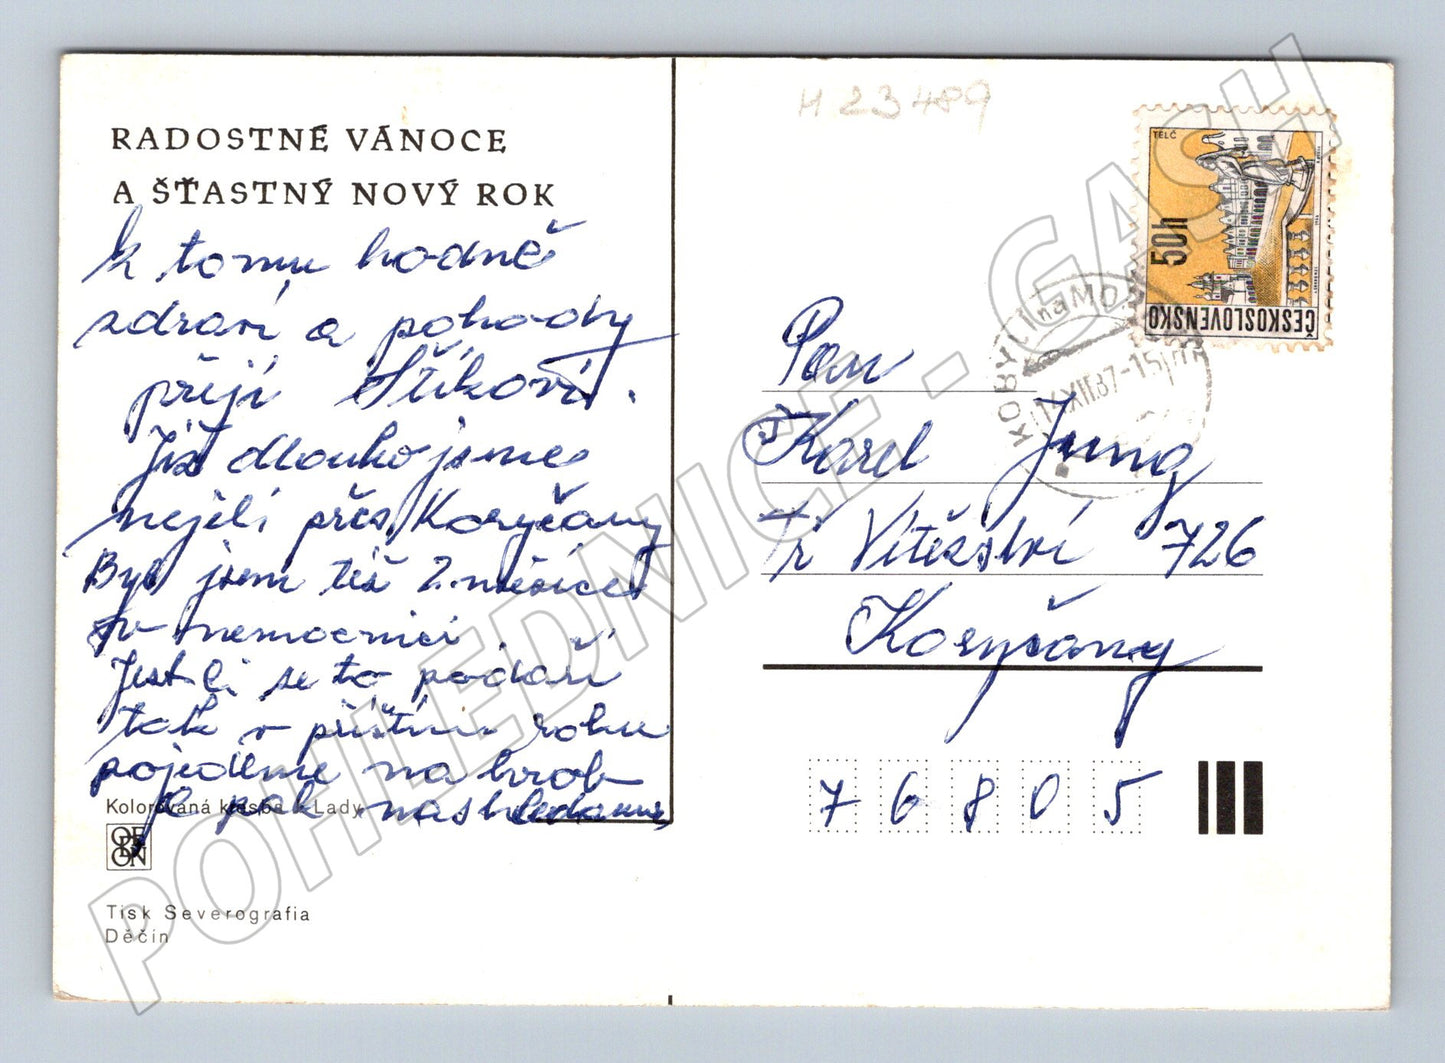 RADOSTNÉ VÁNOCE
A ŠŤASTNÝ NOVÝ ROK
k tomu hodně
zdraví a pohody
přejí Stříkovi.
Již dlouho jsme
nejeli přes Koryčany
Byl jsem též 2. měsíce
v nemocnici.
Jestli se to podaří
tak v příštím roku
pojedeme na hrob
a pak nashledanou
Kolorovaná kresba J. Lady
ODEON
Tisk Severografia
Děčín
H 23489
TELČ
50h
ČESKOSLOVENSKO
KOBYLÍ NA MOR
14.XII.87-15
Pan
Karel Jung
Tř Vítězství 726
Koryčany
76805
POHLEDNICE - GASH